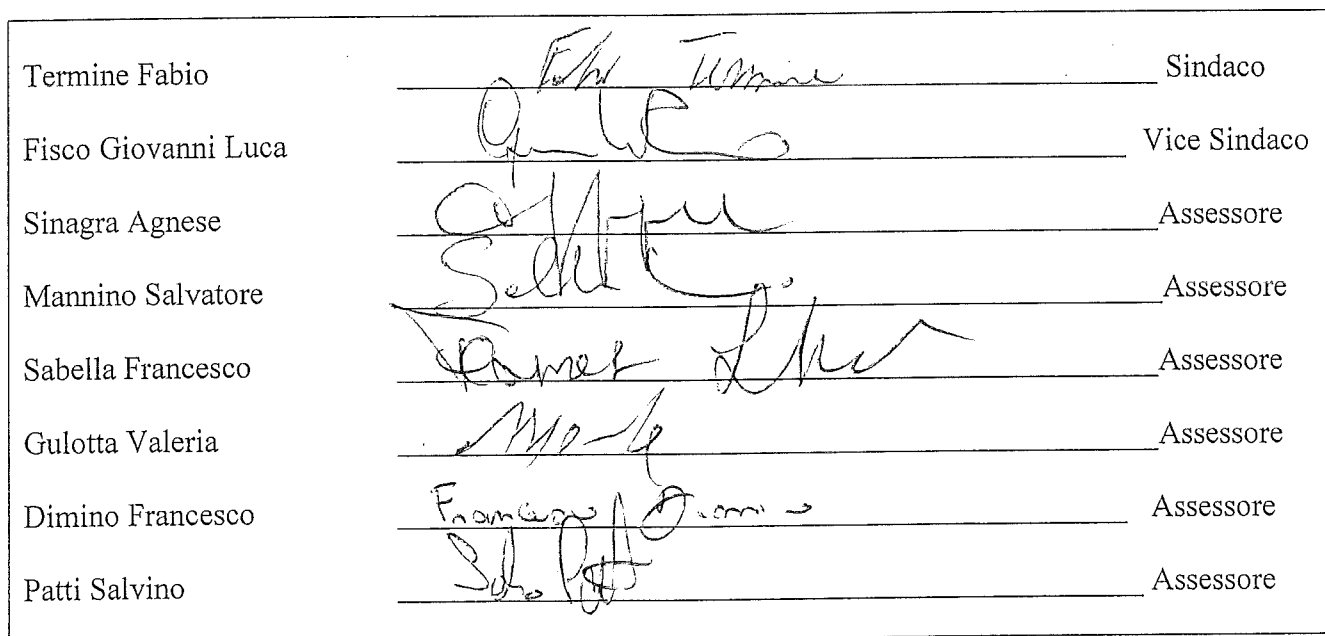 Termine Fabio Fabio Termine Sindaco
Fisco Giovanni Luca Vice Sindaco
Sinagra Agnese Assessore
Mannino Salvatore Assessore
Sabella Francesco Assessore
Gulotta Valeria Assessore
Dimino Francesco Francesco Dimino Assessore
Patti Salvino Assessore